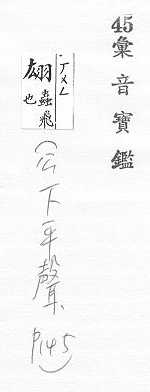 45彙音寶鑑
ㄏㄨㄥ
翃
蟲飛
也
(公下平聲 P145)